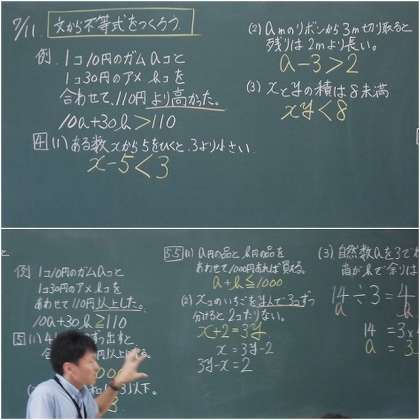 7/11 文から不等式をつくろう。
例. 1コ10円のガムaコと
1コ30円のアメbコを
合わせて、110円より高かった。
10a+30b>110
4 (1) ある数xから5をひくと、3より小さい.
x-5<3
(2) amのリボンから3m切り取ると
残りは2mより長い。
a-3>2
(3) xとyの積は8未満
xy<8
例 1コ10円のガムaコと
1コ30円のアメbコを
あわせて110円以上した。
10a+30b≧110
5 (1)
55 (1) a円の品と b円の品を
あわせて1000円あれば買える。
a+b≦1000
(2) xコのいちごを
3コずつ
分けると2コたりない。
x+2=3y
x=3y-2
3y-x=2
(3) 自然数aを3で
商がbで余りは
14÷3=4
14=3×
a=3